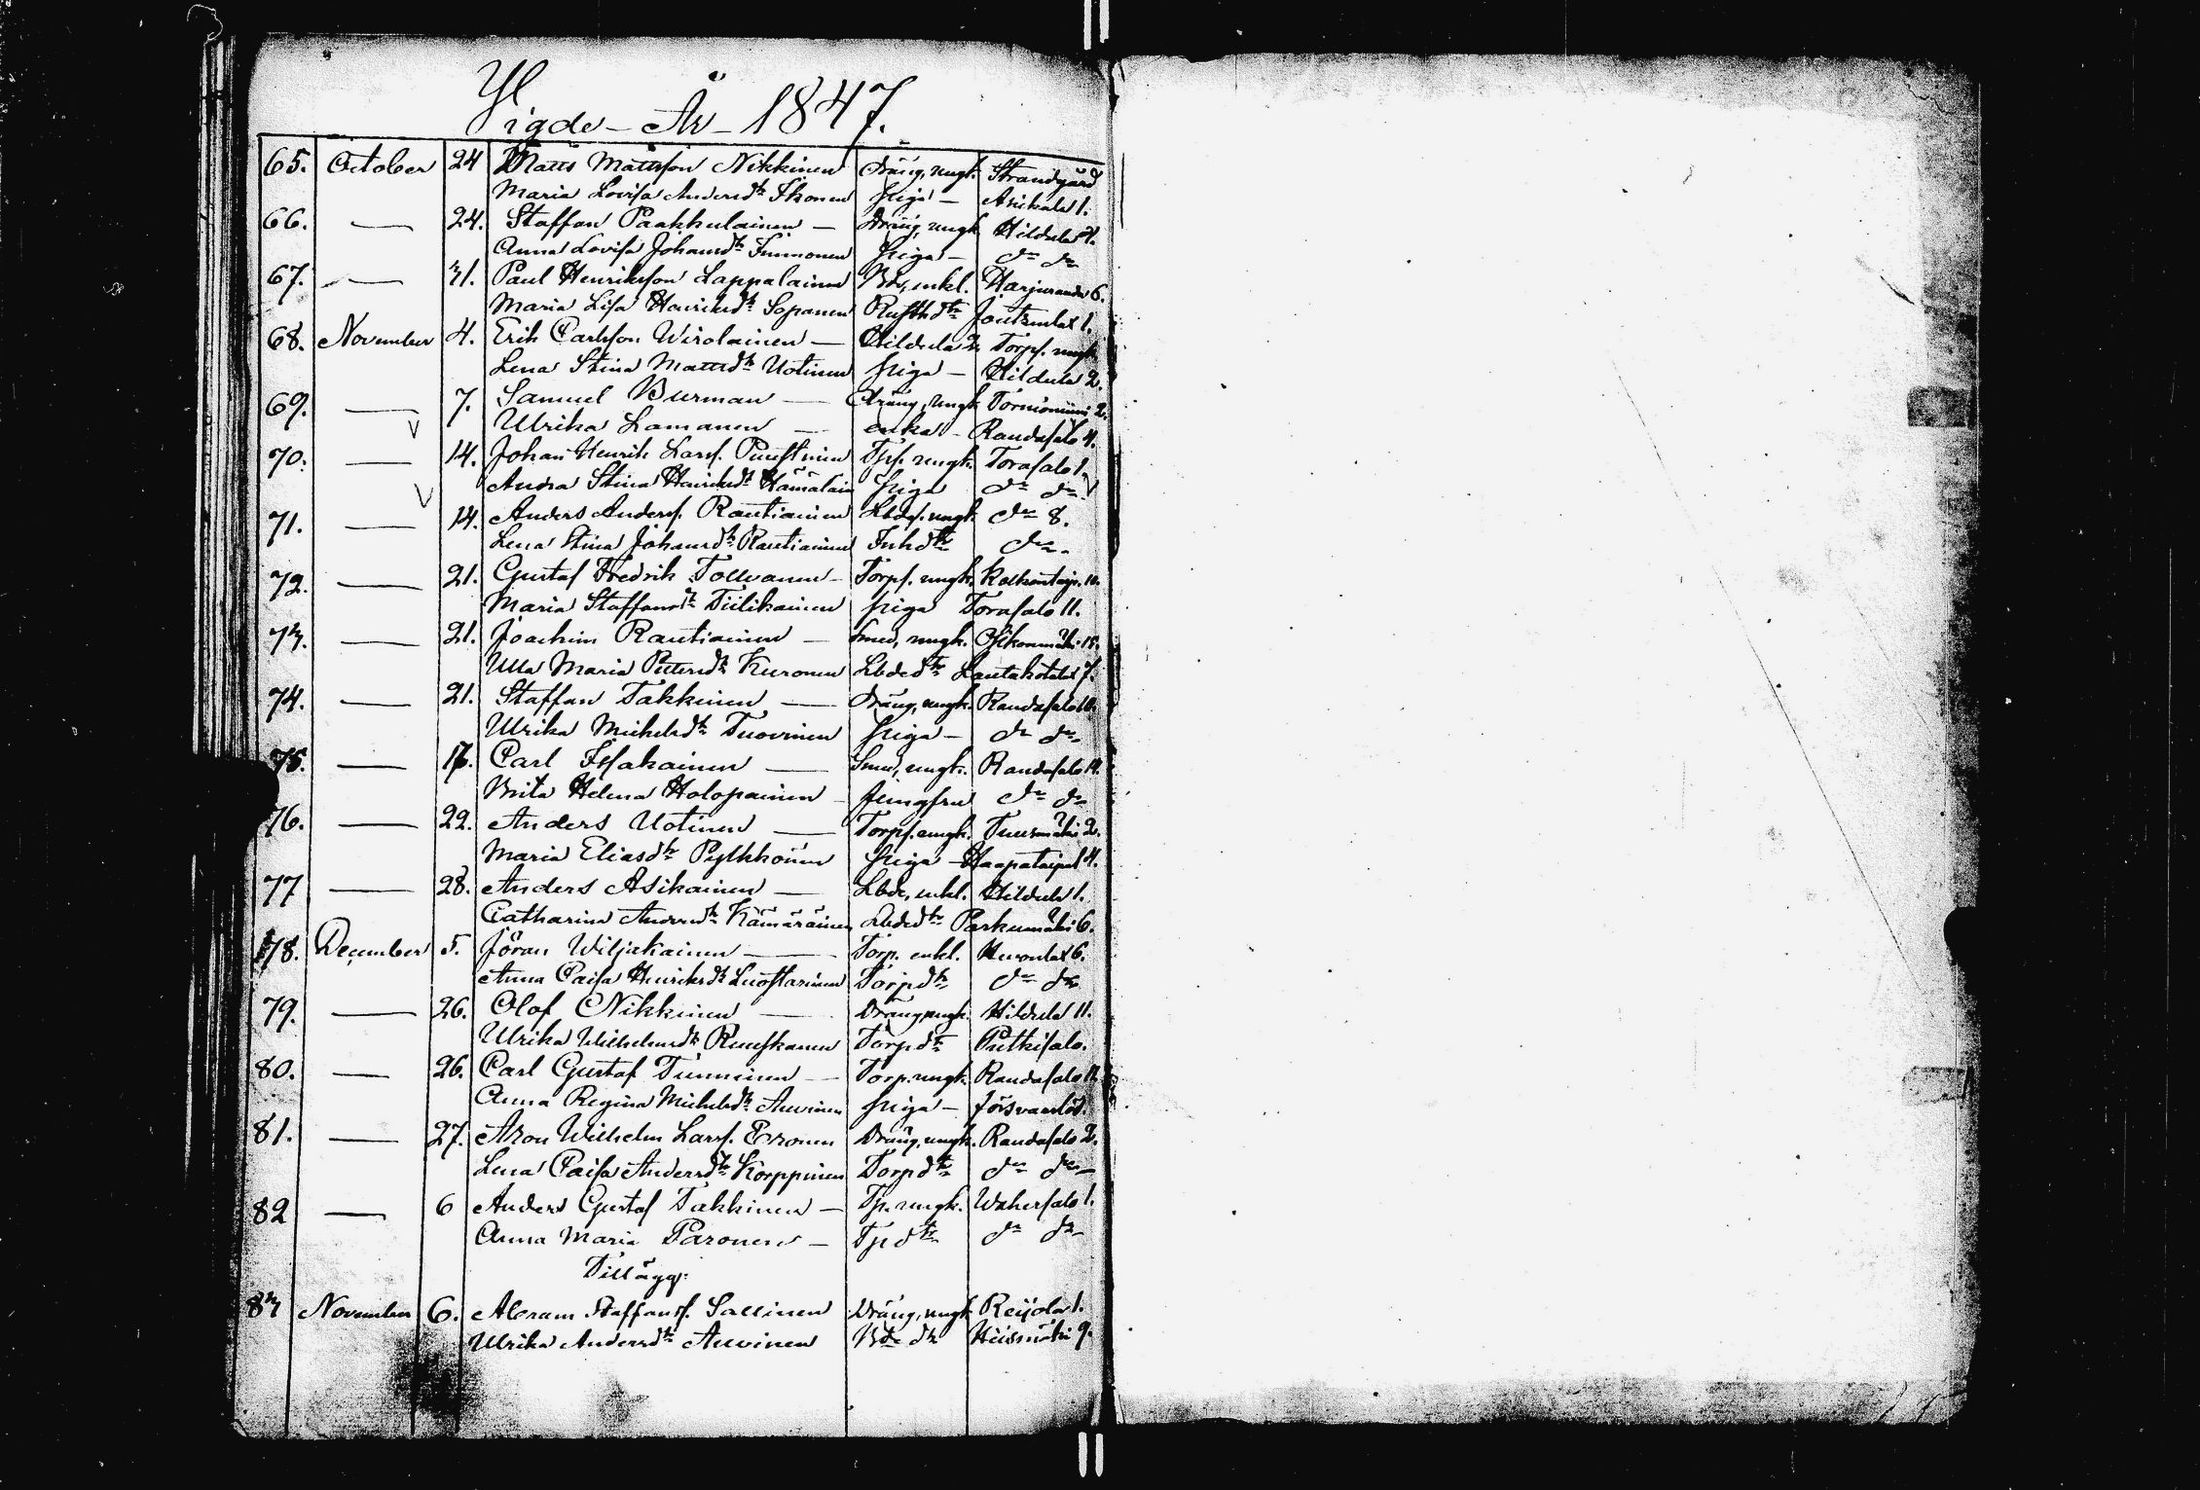 Vigde År 1847.
65. October 24 Matts Mattsson Nikkinen Dräng, ungk. Strandgård
Maria Lovisa Andersdr Ikonen piga Asikala 1.
66. — 24. Staffan Paakkulainen — Dräng, ungk. Hildula 2.
Anna Lovisa Johansdr Immonen piga — do do
67. — 31. Paul Henriksson Lappalainen Bd, enkl. Harjuranda 6.
Maria Lisa Henriksdr Sopanen Rusthdtr Joutsenlax 1.
68. November 4. Erik Carlsson Wirolainen — Hildula 2 Torps. ungk.
Lena Stina Mattsdr Uotinen piga — Hildula 2.
69. — 7. Samuel Burman — Dräng, ungk. Torniöniemi 2.
Ulrika Lamanen — enka — Randasalo 4.
70. — 14. Johan Henrik Larss. Puustinen Tps. ungk. Torasalo 1.
Stina Henriksdr Hämäläin piga do do
71. — 14. Anders Anderss. Rautiainen Lbds. ungk. do 8.
Lena Stina Johansdr Rautiainen Inhdtr do
72. — 21. Gustaf Fredrik Tolvanen — Torps. ungk. 10.
Maria Staffansdr Tiilikainen piga Torasalo 11.
73. — 21. Joachim Rautiainen — Smed, ungk. Osikonmäki 15.
Ulla Maria Pettersdr Kuronen Lbdedtr Lautakotalax 7.
74. — 21. Staffan Takkinen — Dräng, ungk. Randasalo 10.
Ulrika Michelsdr Tuovinen piga — do do
75. — 17. Carl Issakainen — Smed, ungk. Randasalo 14.
Brita Helena Holopainen Jungfru do do
76. — 22. Anders Uotinen — Torps. ungk. Tuusmäki 2.
Maria Eliasdr Pylkkönen piga — Haapataipal 4.
77 — 28. Anders Asikainen — Lbde, enkl. Hildula 1.
Catharina Andersdr Kämäräinen Lbdedtr Parkumäki 6.
78. December 5. Jöran Wiljakainen — Torp. enkl. Huronlax 6.
Anna Caisa Henriksdr Luostarinen Torpdtr do do
79. — 26. Olof Nikkinen — Dräng, ungk. Hildula 11.
Ulrika Wilhelmsdr Ruuskanen Torpdtr Putkisalo.
80. — 26. Carl Gustaf Timminen — Torp. ungk. Randasalo 11.
Anna Regina Michelsdr Auvinen piga — försvarslös.
81. — 27. Aron Wilhelm Larss. Eronen Dräng, ungk. Randasalo 2.
Lena Caisa Andersdr Korppinen Torpdtr do do —
82 — 6 Anders Gustaf Takkinen — Tp. ungk. Wahersalo 1.
Anna Maria Paronen — Tpdtr do do
Tillägg:
83 November 6. Abram Staffanss. Sallinen Dräng, ungk. Reijola 1.
Ulrika Andersdr Auvinen Bde dr Hiismäki 9.